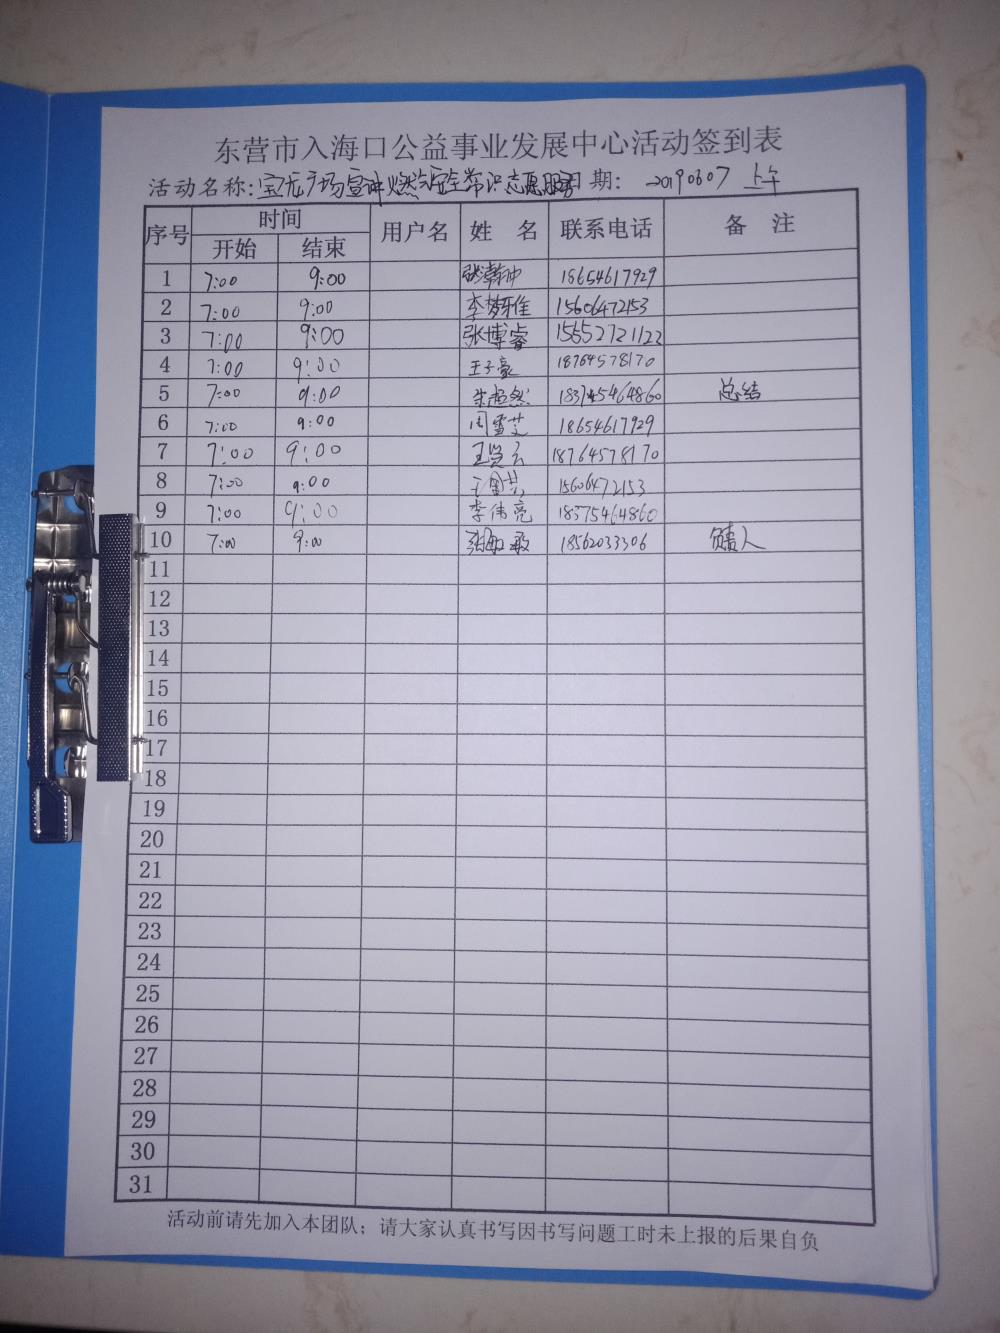 东营市入海口公益事业发展中心活动签到表
活动名称:宝龙广场宣讲燃气安全常识志愿服务 日期: 20190607 上午
序号 时间 用户名 姓 名 联系电话 备 注
开始 结束
1 7:00 9:00 张瀚中 18654617929
2 7:00 9:00 李梦雅 15606472153
3 7:00 9:00 张博睿 15552721122
4 7:00 9:00 王子豪 18764578170
5 7:00 9:00 朱超然 总结
6 7:00 9:00 周雪艾 18654617929
7 7:00 9:00 王贤云 18764578170
8 7:00 9:00 15606472153
9 7:00 9:00 李伟亮 18375464860
10 7:00 9:00 18562033306 负责人
11
12
13
14
15
16
17
18
19
20
21
22
23
24
25
26
27
28
29
30
31
活动前请先加入本团队；请大家认真书写因书写问题工时未上报的后果自负